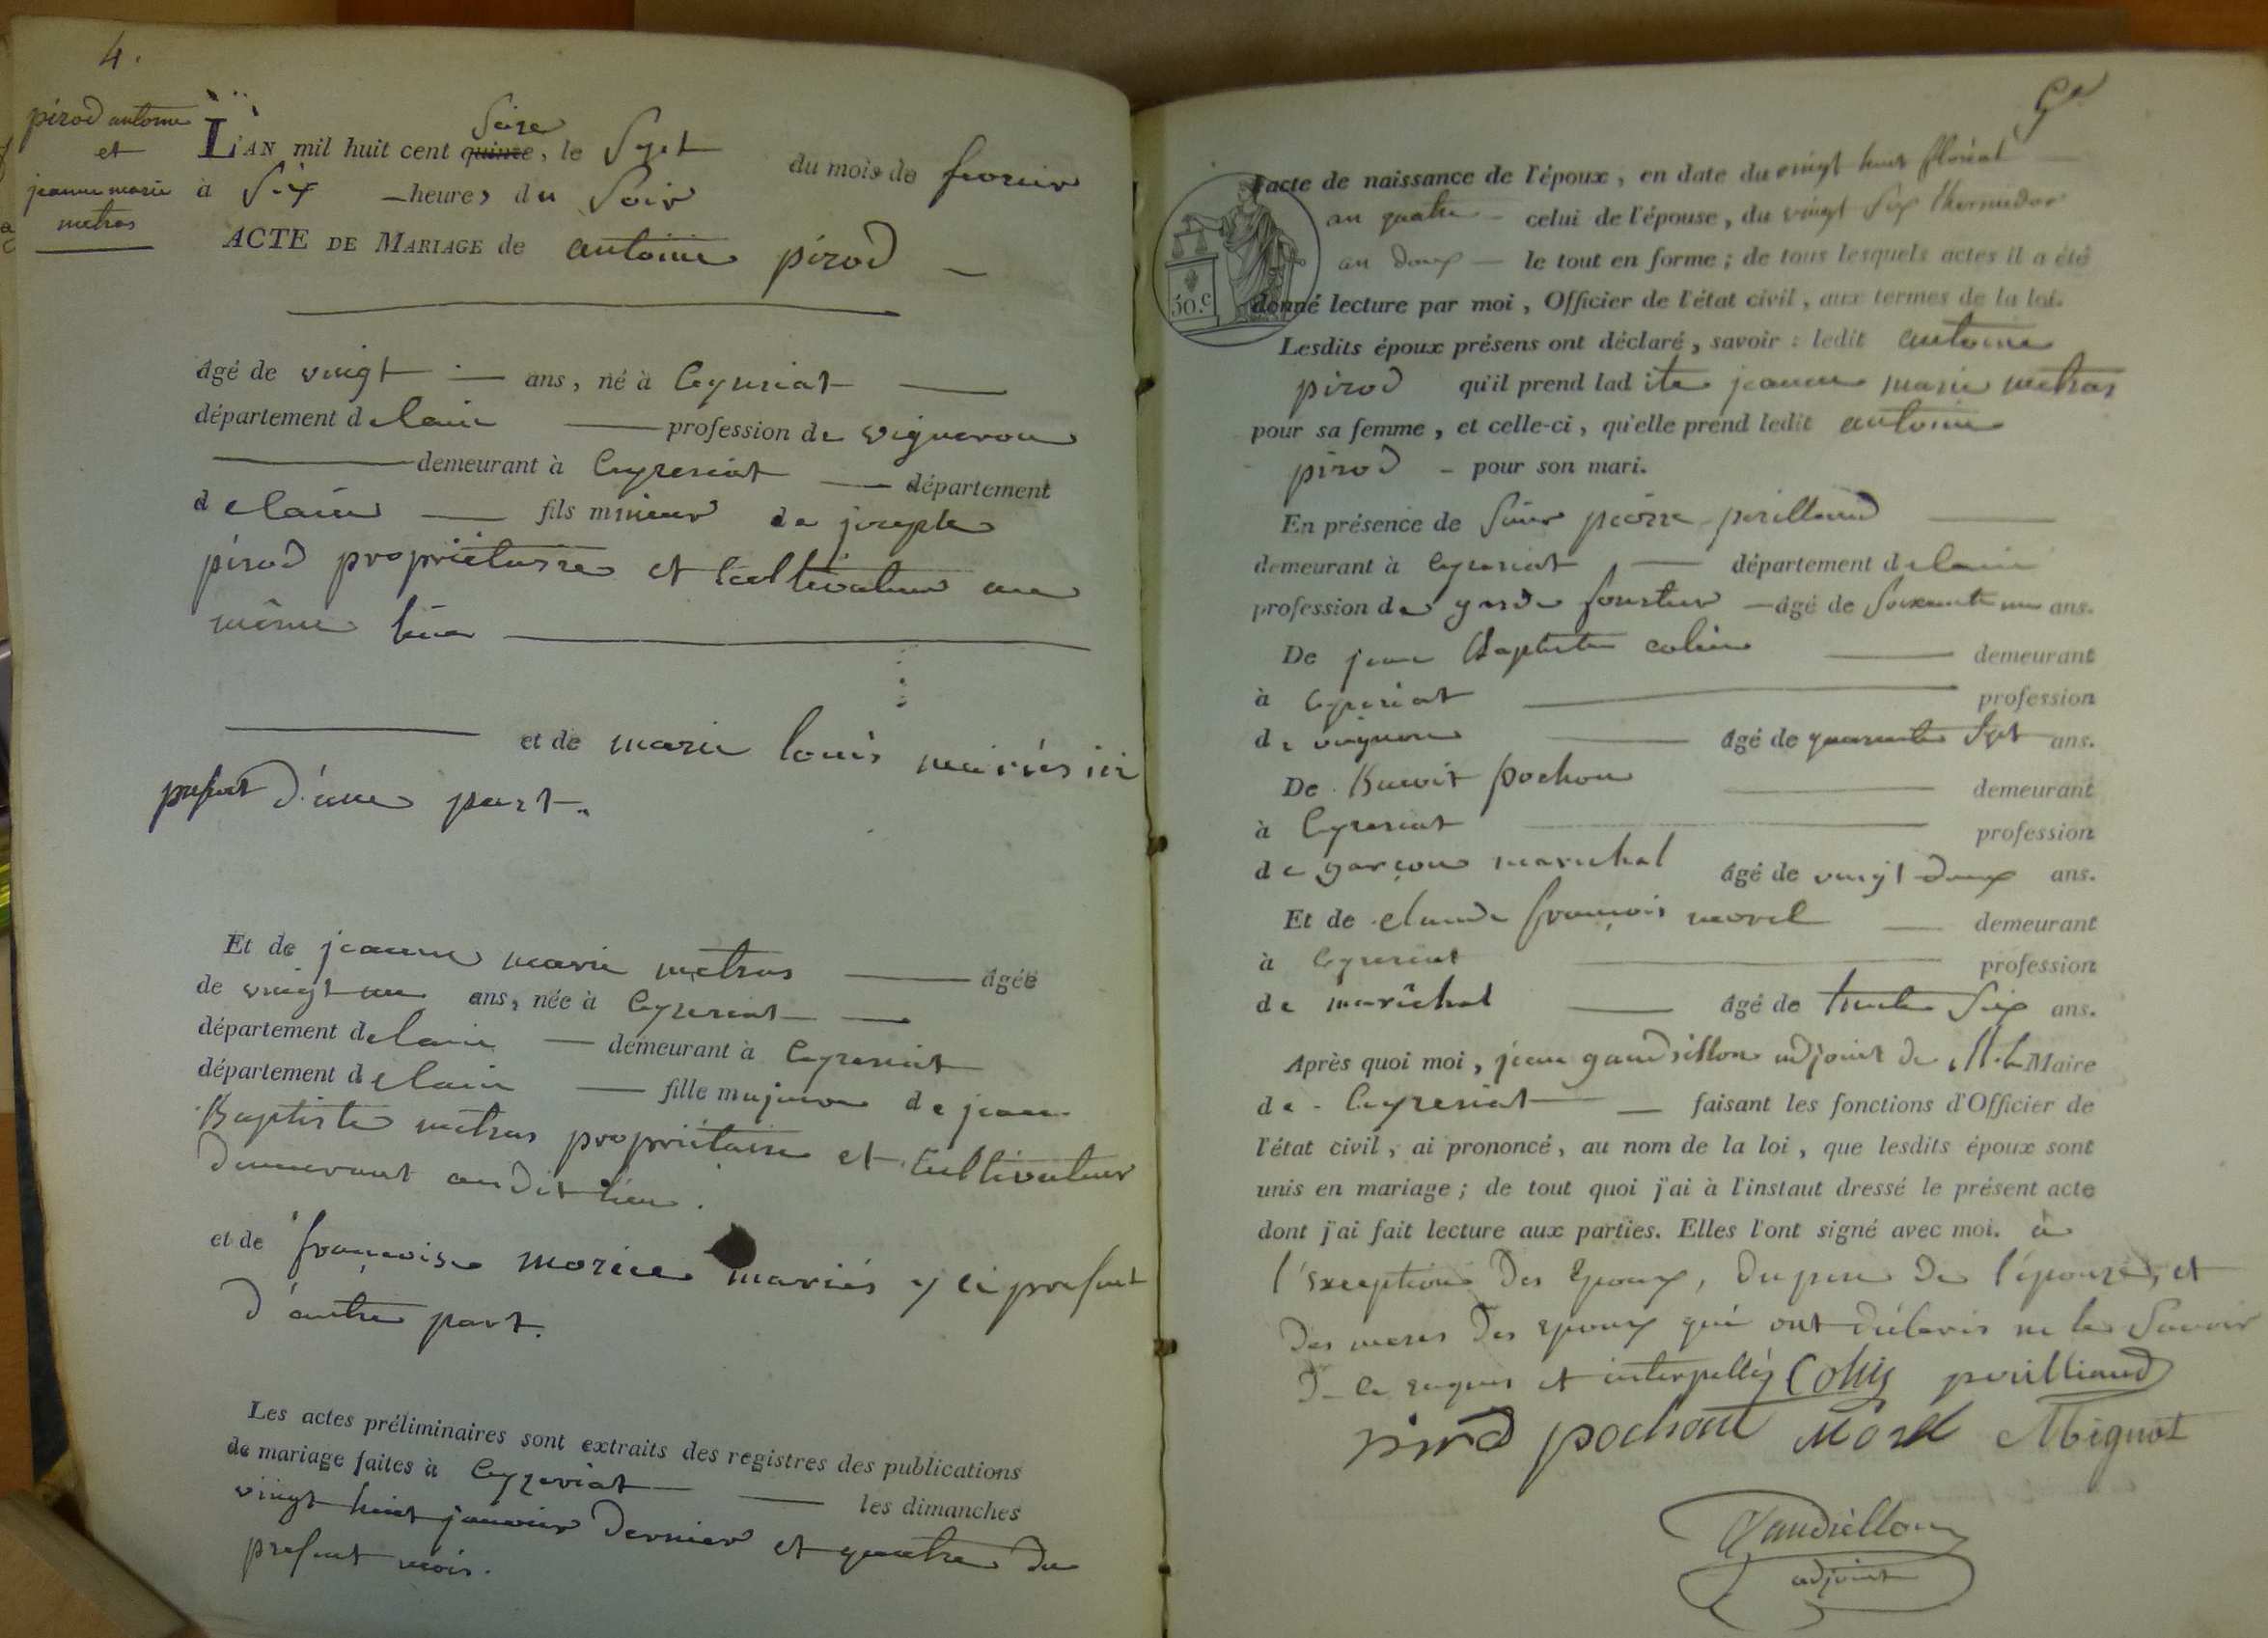 4.
pirod antoine
et
jeanne marie
metras
L'AN mil huit cent quinze, le Sept du mois de fevrier
Seize
à Six heures du Soir
ACTE DE MARIAGE de antoine pirod
âgé de vingt ans, né à Ceyzeriat
département de lain profession de vigneron
demeurant à Ceyzeriat département
de lain fils mineur de joseph
pirod propriétaire et Cultivateur au
même lieu
et de marie louis mariés ici
present d'une part.
Et de jeanne marie metras âgée
de vingt un ans, née à Ceyzeriat
département de lain demeurant à Ceyzeriat
département de lain fille majeure de jean
Baptiste metras propriétaire et Cultivateur
demeurant audit lieu.
et de françoise morice mariés y ci present
d'autre part.
Les actes préliminaires sont extraits des registres des publications
de mariage faites à Ceyzeriat les dimanches
vingt huit janvier dernier et quatre du
present mois.
l'acte de naissance de l'époux, en date du vingt huit floréal
an quatre celui de l'épouse, du vingt Six thermidor
an deux le tout en forme; de tous lesquels actes il a été
50.c
donné lecture par moi, Officier de l'état civil, aux termes de la loi.
Lesdits époux présens ont déclaré, savoir: ledit antoine
pirod qu'il prend ladite jeanne marie metras
pour sa femme, et celle-ci, qu'elle prend ledit antoine
pirod pour son mari.
En présence de Sieur pierre perilliaud
demeurant à Ceyzeriat département de lain
profession de garde forestier âgé de Soixante un ans.
De jean Baptiste colin demeurant
à Ceyzeriat profession
de vigneron âgé de quarante Sept ans.
De Benoit pochon demeurant
à Ceyzeriat profession
de garçon marechal âgé de vingt deux ans.
Et de claude françois morel demeurant
à Ceyzeriat profession
de maréchal âgé de trente Six ans.
Après quoi moi, jean gaudillon adjoint de M. le Maire
de Ceyzeriat faisant les fonctions d'Officier de
l'état civil, ai prononcé, au nom de la loi, que lesdits époux sont
unis en mariage; de tout quoi j'ai à l'instaut dressé le présent acte
dont j'ai fait lecture aux parties. Elles l'ont signé avec moi. à
l'Exception des Epoux, du pere de l'épouze, et
des meres des epoux qui ont déclarés ne le Savoir
de ce requis et interpellés Collin perilliaud
pirod pochont Morel Mignot
Gaudillon
adjoint